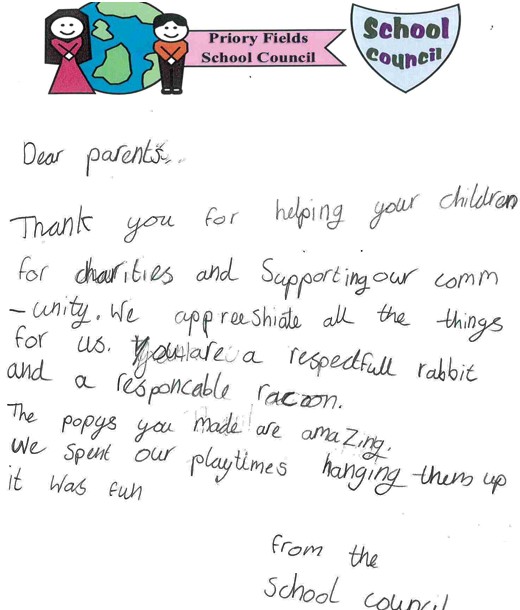 Priory Fields
School Council
School
Council
Dear parents..
Thank you for helping your children
for charities and Supporting our comm
-unity. We appreeshiate all the things
for us. You are a respectfull rabbit
and a responcable racoon.
The popys you made are amazing.
We spent our playtimes hanging them up
it was fun
from the
School council